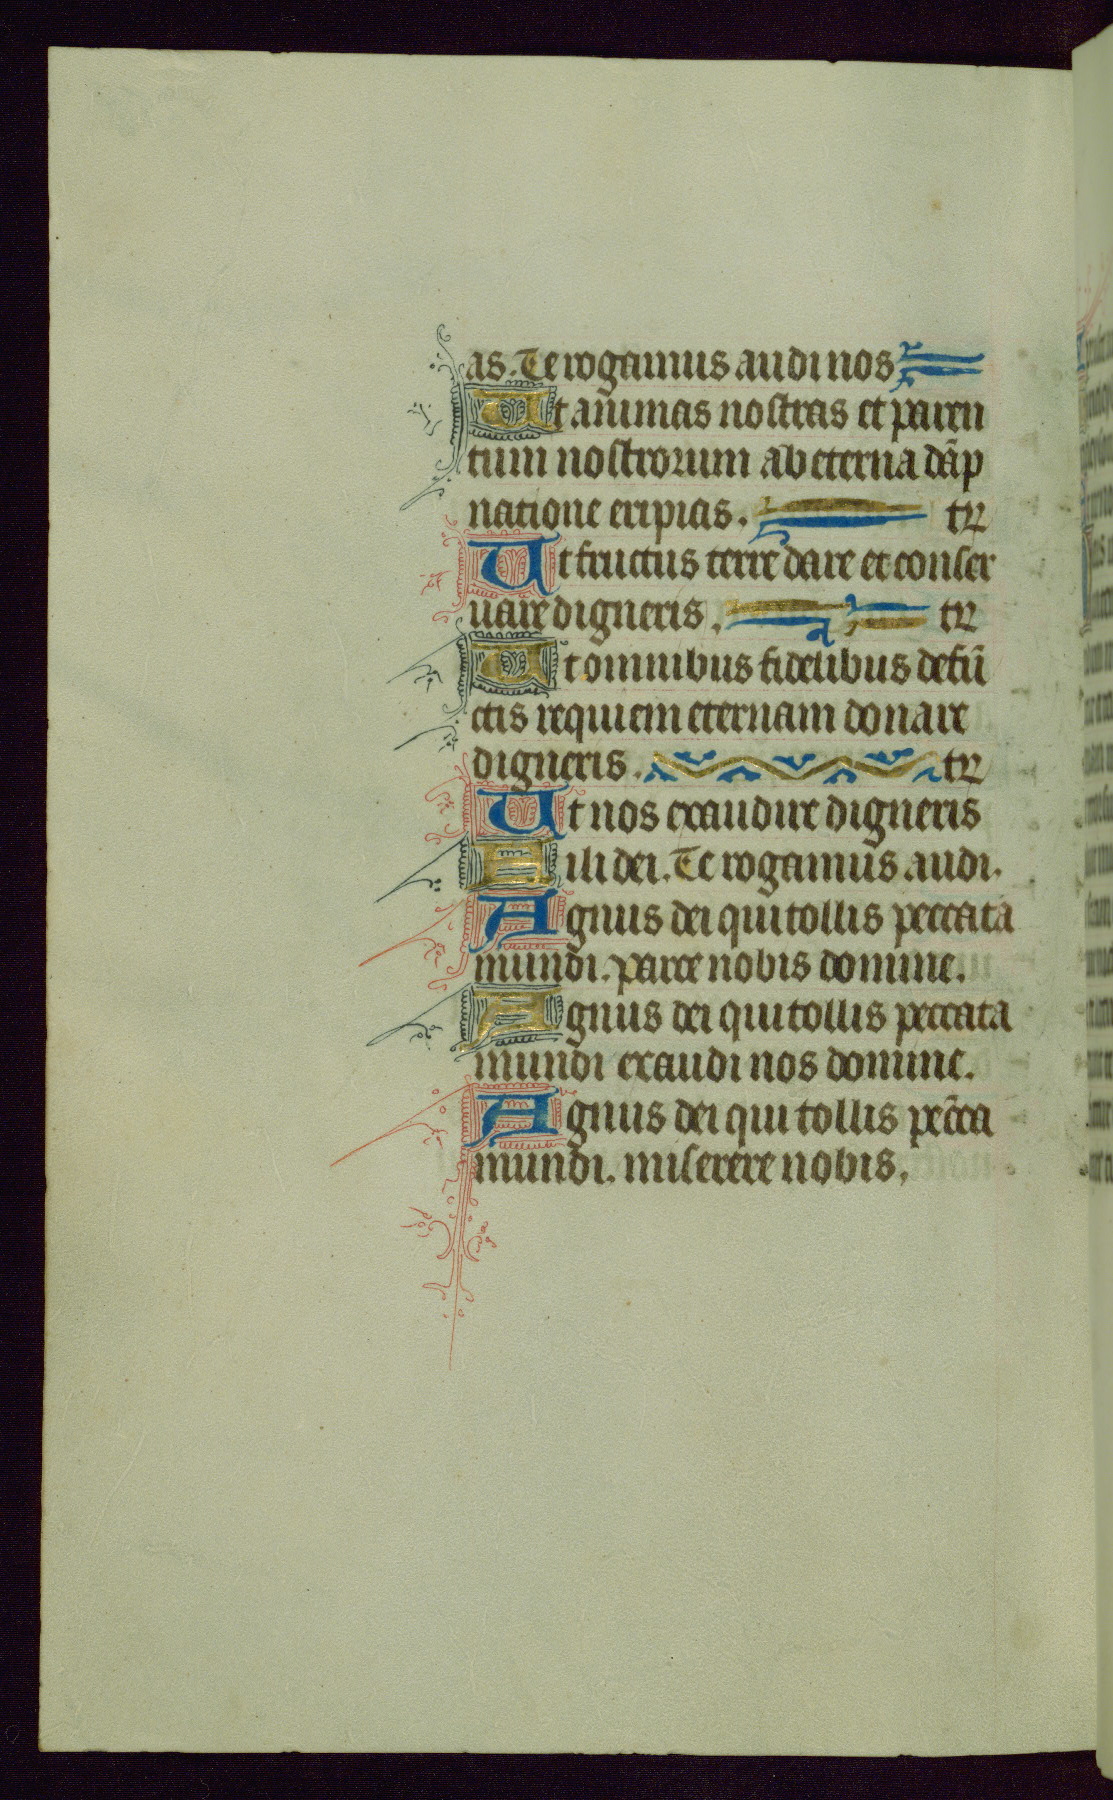 as. Te rogamus audi nos
Ut animas nostras et paren
tum nostrorum ab eterna dãp
natione eripias. tꝝ
Ut fructus terre dare et conser
uare digneris. tꝝ
Ut omnibus fidelibus defũ
ctis requiem eternam donare
digneris. tꝝ
Ut nos exaudire digneris
Fili dei. Te rogamus audi.
Agnus dei qui tollis peccata
mundi. parce nobis domine.
Agnus dei qui tollis peccata
mundi exaudi nos domine.
Agnus dei qui tollis pecca
mundi. miserere nobis.